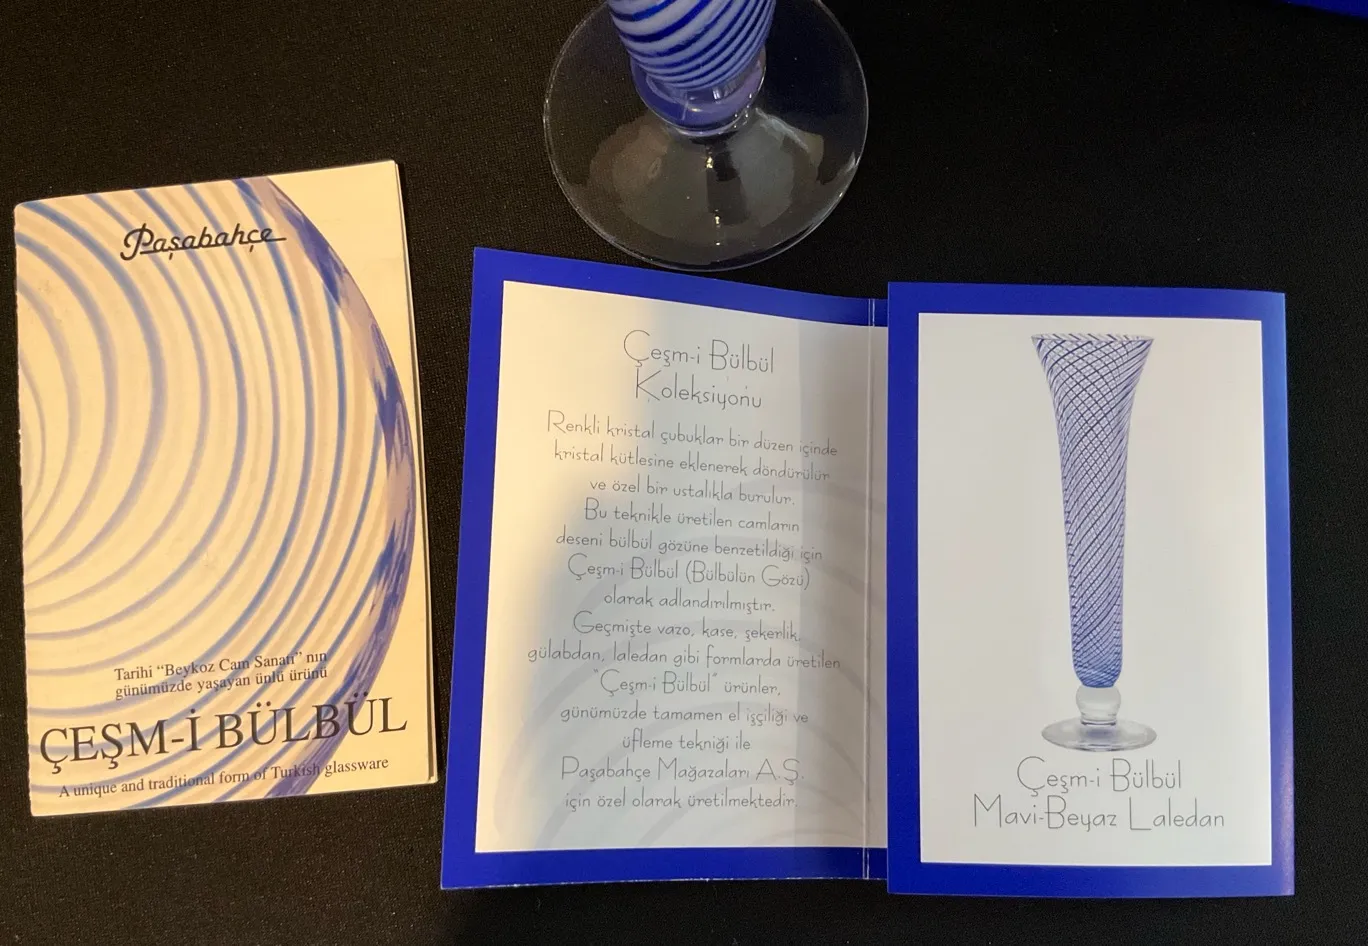 Paşabahçe
Tarihi “Beykoz Cam Sanatı” nın
günümüzde yaşayan ünlü ürünü
ÇEŞM-İ BÜLBÜL
A unique and traditional form of Turkish glassware
Çeşm-i Bülbül
Koleksiyonu
Renkli kristal çubuklar bir düzen içinde
kristal kütlesine eklenerek döndürülür
ve özel bir ustalıkla burulur.
Bu teknikle üretilen camların
deseni bülbül gözüne benzetildiği için
Çeşm-i Bülbül (Bülbülün Gözü)
olarak adlandırılmıştır.
Geçmişte vazo, kase, şekerlik,
gülabdan, laledan gibi formlarda üretilen
"Çeşm-i Bülbül" ürünler,
günümüzde tamamen el işçiliği ve
üfleme tekniği ile
Paşabahçe Mağazaları A.Ş.
için özel olarak üretilmektedir.
Çeşm-i Bülbül
Mavi-Beyaz Laledan